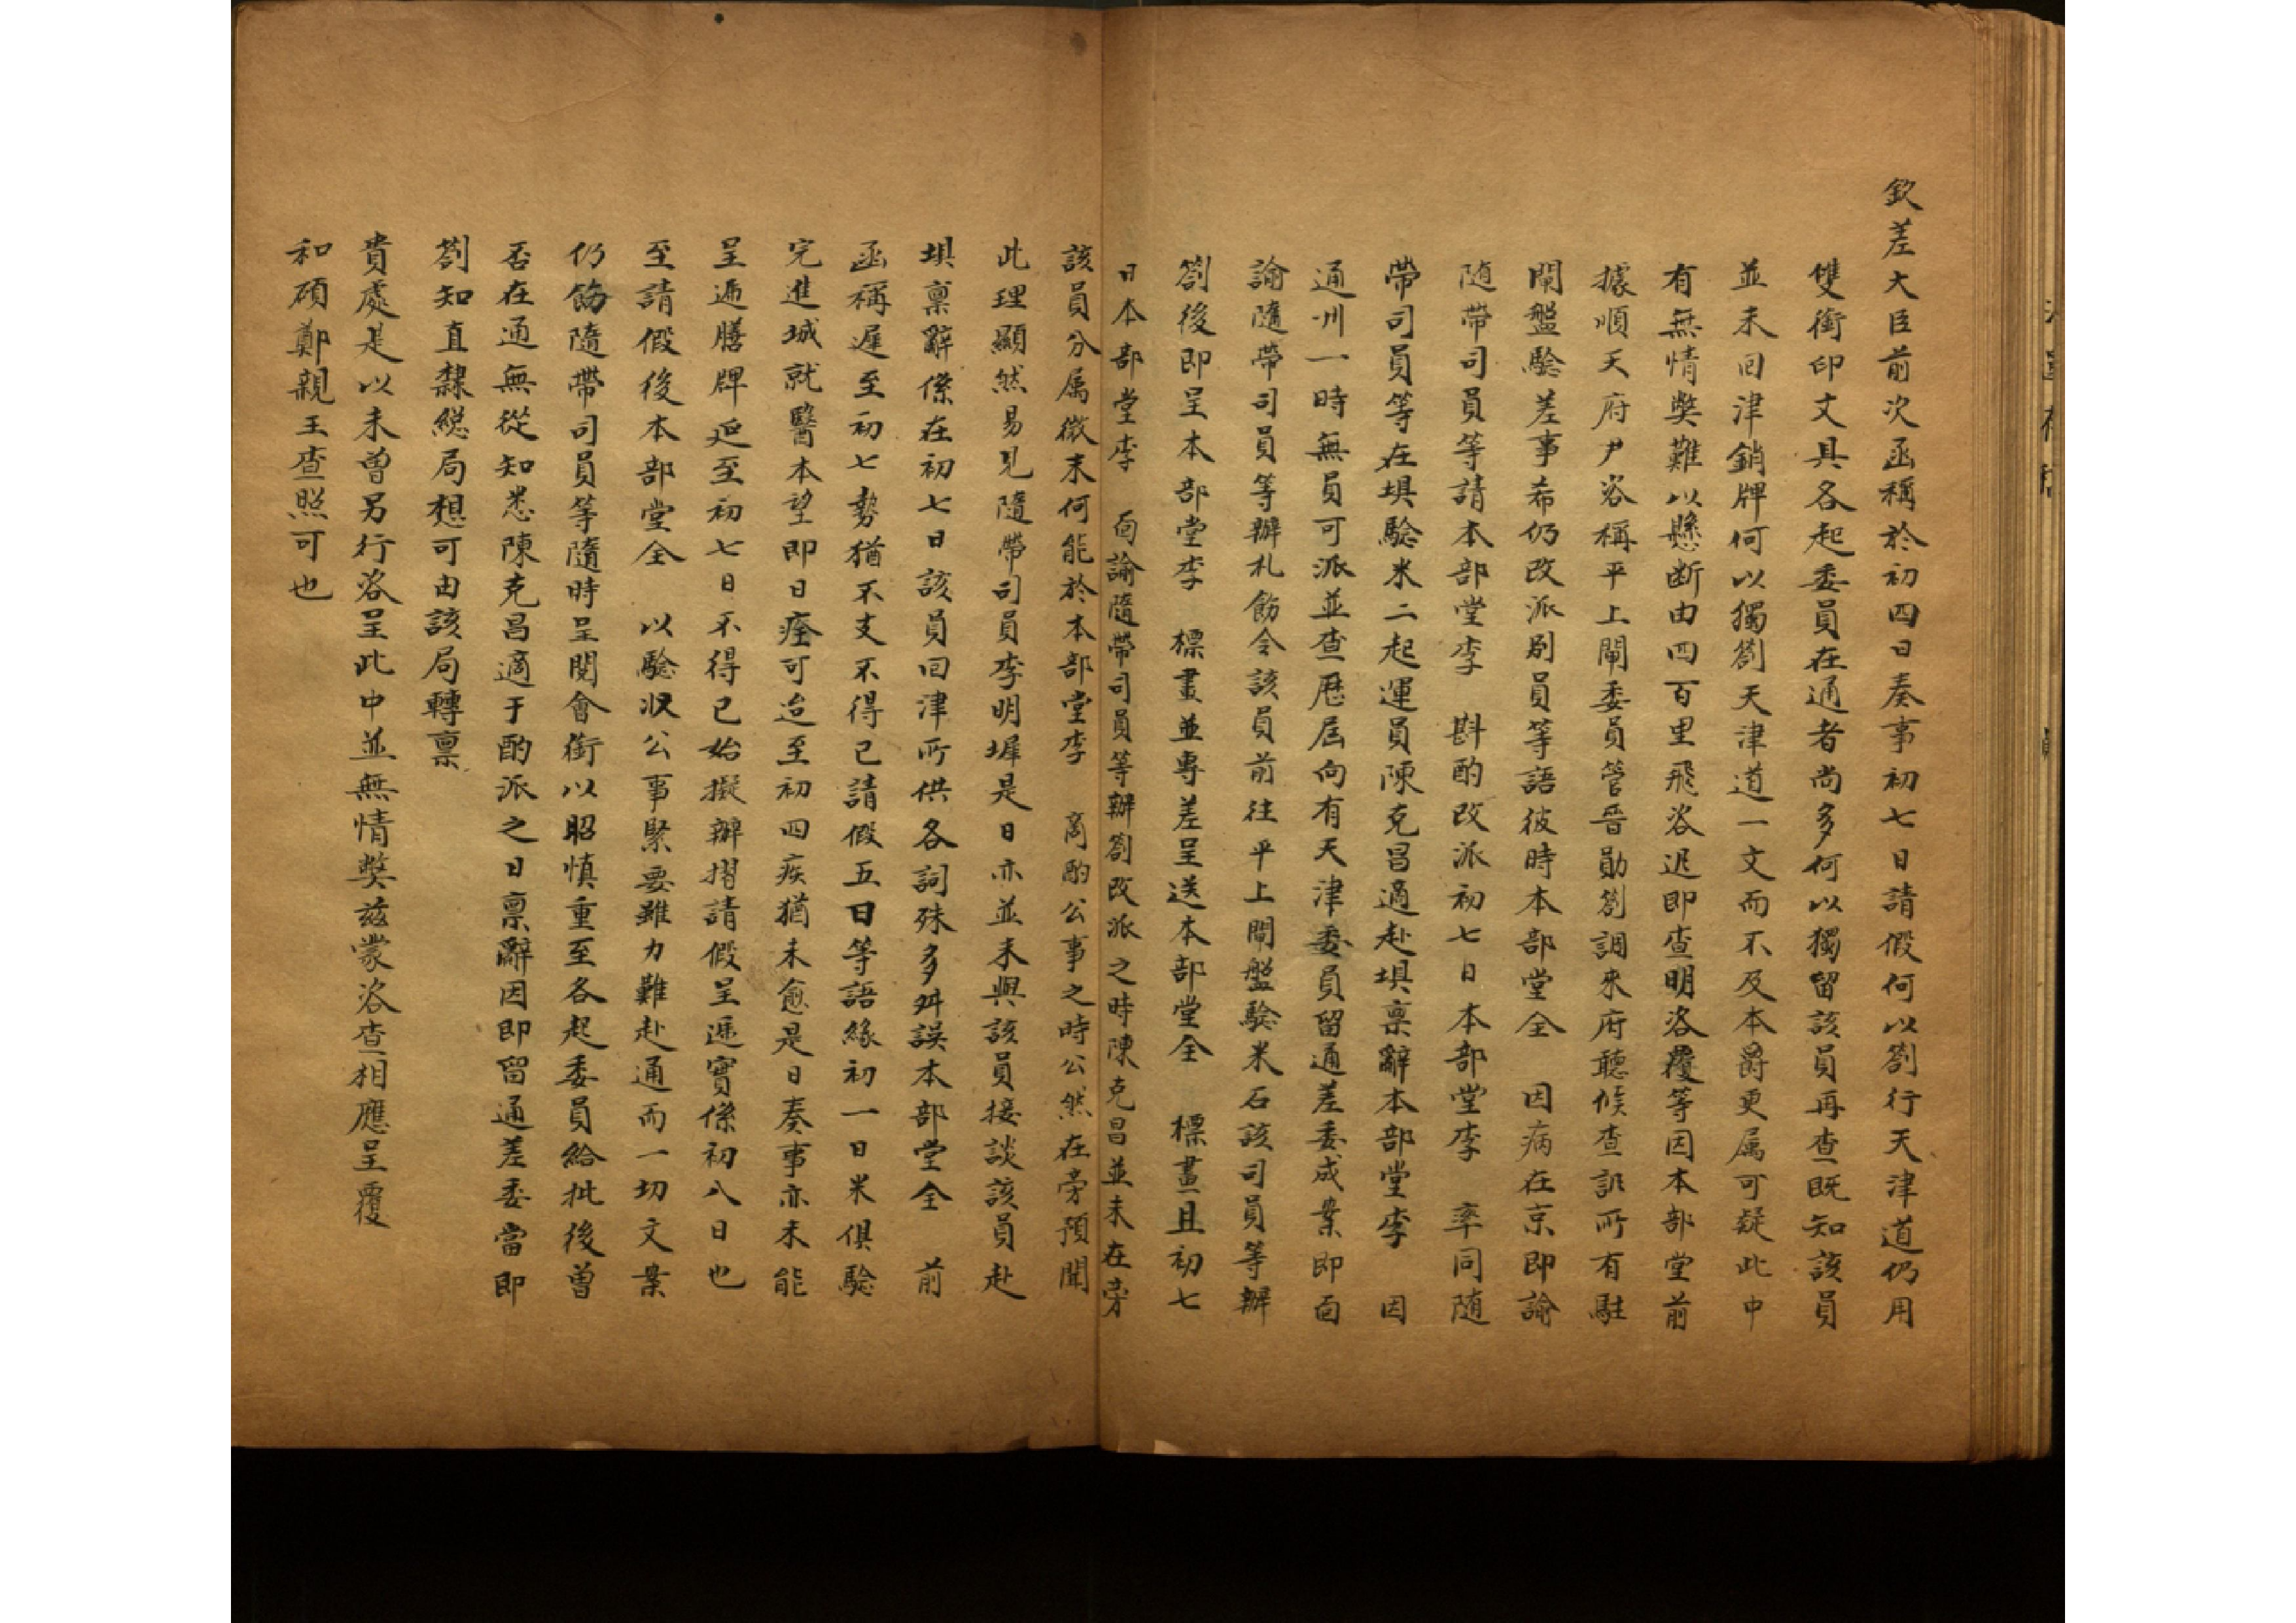 欽差大臣前次函稱於初四日奏事初七日請假何以劄行天津道仍用
雙銜印文具各起委員在通者尚多何以獨留該員再查既知該員
並未回津銷牌何以獨劄天津道一文而不及本爵更属可疑此中
有無情獘難以懸断由四百里飛咨迅即查明咨覆等因本部堂前
據順天府尹咨稱平上閘委員管晋勛劄調來府聽候查訊所有駐
閘盤驗差事希仍改派别員等語彼時本部堂全 因病在京即諭
随帶司員等請本部堂李 斟酌改派初七日本部堂李 率同随
帶司員等在垻驗米二起運員陳克昌適赴垻禀辭本部堂李 因
通州一時無員可派並查歷屆向有天津委員留通差委成案即面
諭隨帶司員等辦札飭令該員前往平上閘盤驗米石該司員等辦
劄後即呈本部堂李 標畫並專差呈送本部堂全 標畫且初七
日本部堂李 面諭隨帶司員等辦劄改派之時陳克昌並未在旁
該員分属微末何能於本部堂李 商酌公事之時公然在旁預聞
此理顯然易見隨帶司員李明墀是日亦並未與該員接談該員赴
垻禀辭係在初七日該員回津所供各詞殊多舛誤本部堂全 前
函稱遲至初七勢猶不支不得已請假五日等語緣初一日米俱驗
完進城就醫本望即日痊可迨至初四疾猶未愈是日奏事亦未能
呈遞膳牌延至初七日不得已始擬辦摺請假呈遞實係初八日也
至請假後本部堂全 以驗収公事緊要雖力難赴通而一切文案
仍飭隨帶司員等隨時呈閱會銜以昭慎重至各起委員給批後曾
否在通無從知悉陳克昌適于酌派之日禀辭因即留通差委當即
劄知直隸縂局想可由該局轉禀
貴處是以未曾另行咨呈此中並無情獘兹蒙咨查相應呈覆
和碩鄭親王查照可也